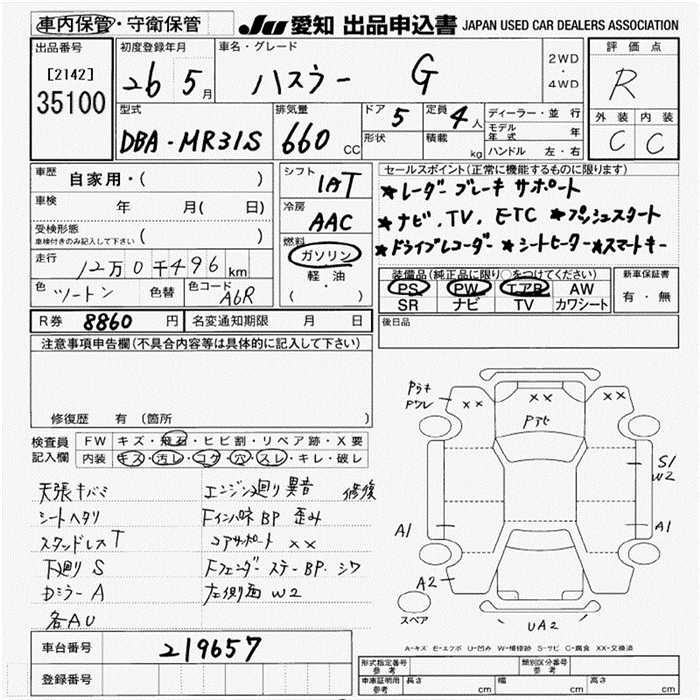 車内保管・守衛保管 JU 愛知 出品申込書 JAPAN USED CAR DEALERS ASSOCIATION
出品番号 初度登録年月 車名・グレード 評価点
[2142] 26 5月 ハスラー G 2WD・4WD R
35100
型式 排気量 ドア 5 定員 4人 ディーラー・並行 外装 内装
DBA-MR31S 660CC 形状 積載 kg モデル年式 年 C C
ハンドル 左・右
車歴 自家用・( ) シフト 1AT セールスポイント(正常に機能するものに限ります)
車検 年 月( 日) 冷房 AAC ★レーダーブレーキサポート
受検形態 車検付きのみ記入して下さい ( ) ★ナビ、TV、ETC ★プッシュスタート
走行 12万0千496km 燃料 ガソリン・軽・油 ( ) ★ドライブレコーダー ★シートヒーター ★スマートキー
色 ツートン 色替 色コード A6R 装備品(純正品に限り○をつけてください) 新車保証書
PS PW エアB AW 有・無
SR ナビ TV カワシート
R券 8860円 名変通知期限 月 日 後日品
注意事項申告欄(不具合内容等は具体的に記入して下さい)
修復歴 有 (箇所
検査員記入欄 FW キズ・飛石・ヒビ割・リペア跡・X要
内装 キズ・汚レ・コゲ・穴・スレ・キレ・破レ
天張キバミ エンジン廻り異音 修復
シートヘタリ Fインパネ BP 歪み
スタッドレスT コアサポート ××
下廻りS Fフェンダーステー BP. シワ
DミラーA 左側面W2
各AU
××
××
××
A1
A2
S1
W2
A1
UA2
スペア
A-キズ E-エクボ U-凹み W-補修跡 S-サビ C-腐食 XX-交換済
車台番号 219657
登録番号
形式指定番号 参考 類別区分番号 参考
車車証明用 参考 長さ cm 幅 cm 高さ cm